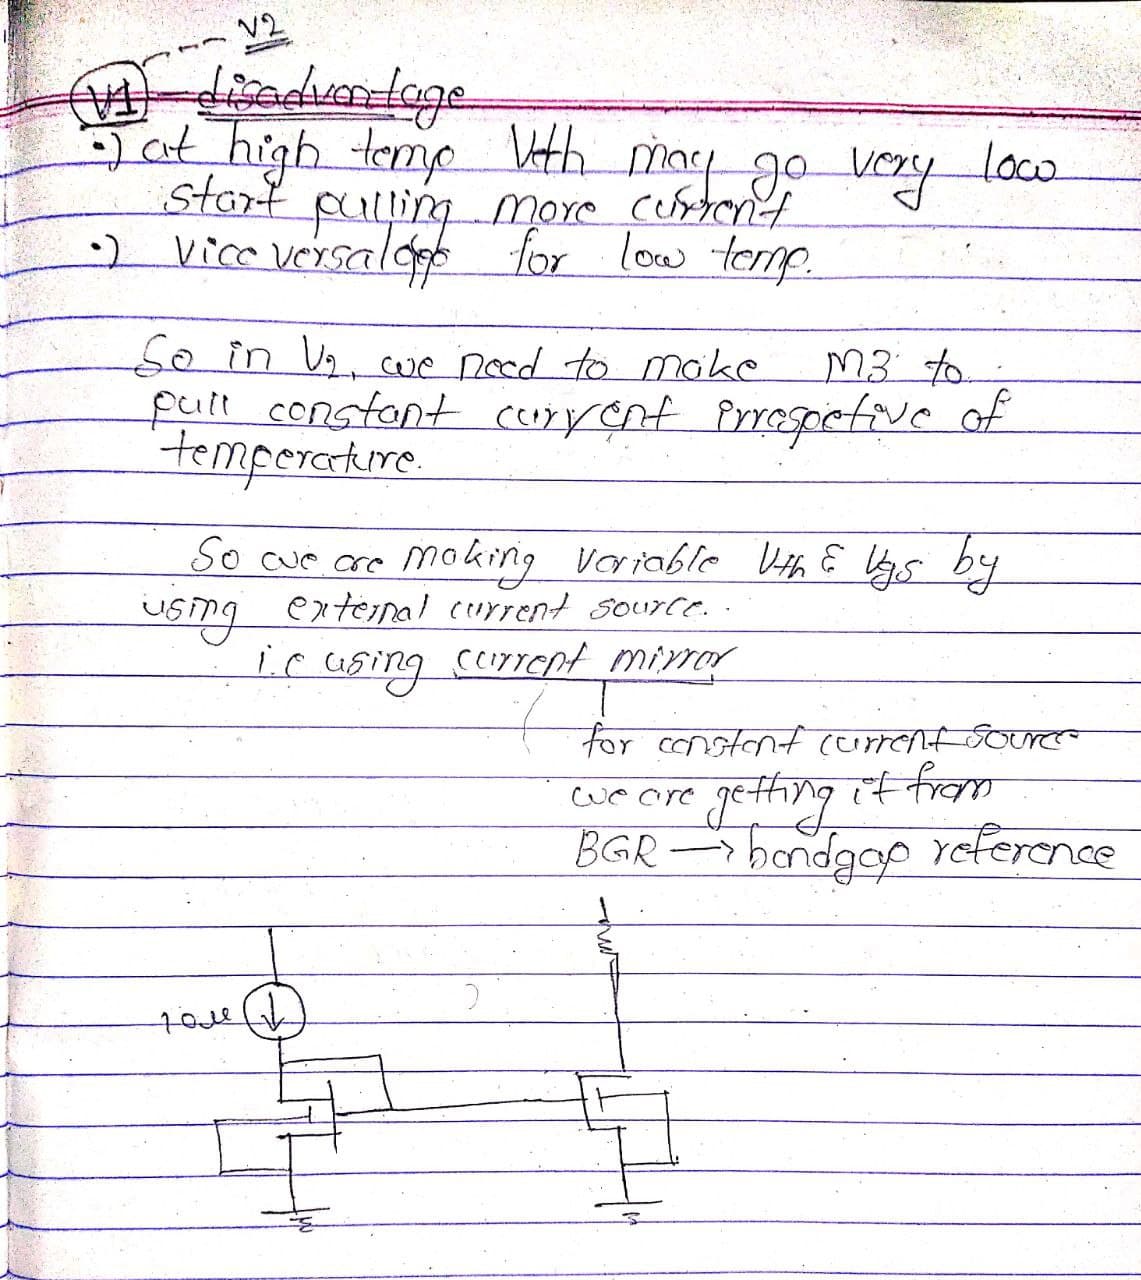 V2
V1 - disadvantage
•) at high temp Vth may go very low
start pulling more current
•) vice versa for low temp.
So in V2, we need to make M3 to
pull constant current irrespetive of
temperature.
So we are making variable Vth & Vgs by
using external current source.
i.e using current mirror
for constant current source
we are getting it from
BGR → bandgap reference
10u